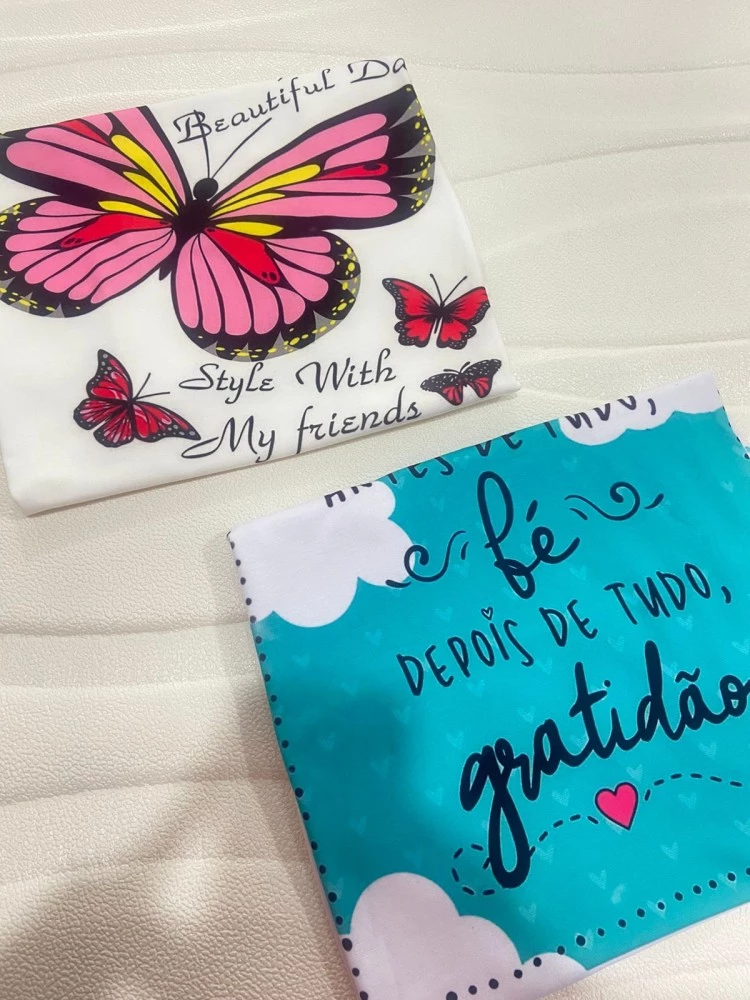 Beautiful Da
Style With
My friends
ANTES DE TUDO,
fé
DEPOIS DE TUDO,
gratidão